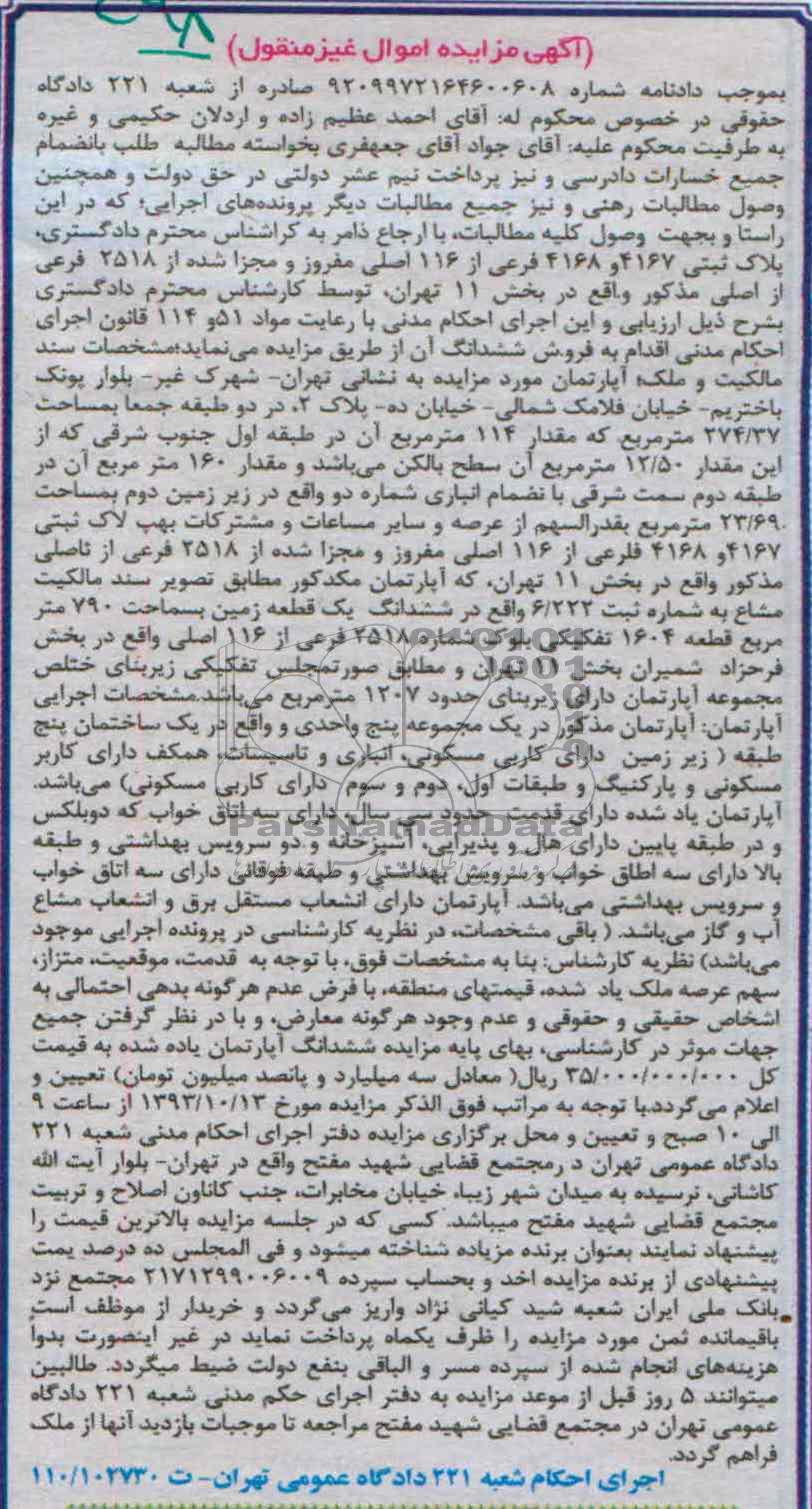 (آگهی مزایده اموال غیرمنقول)
بموجب دادنامه شماره ۹۲۰۹۹۷۲۱۶۴۶۰۰۶۰۸ صادره از شعبه ۲۲۱ دادگاه
حقوقی در خصوص محکوم له: آقای احمد عظیم زاده و اردلان حکیمی و غیره
به طرفیت محکوم علیه: آقای جواد آقای جعهفری بخواسته مطالبه طلب بانضمام
جمیع خسارات دادرسی و نیز پرداخت نیم عشر دولتی در حق دولت و همچنین
وصول مطالبات رهنی و نیز جمیع مطالبات دیگر پرونده‌های اجرایی؛ که در این
راستا و بجهت وصول کلیه مطالبات، با ارجاع ذامر به کراشناس محترم دادگستری،
پلاک ثبتی ۴۱۶۷و ۴۱۶۸ فرعی از ۱۱۶ اصلی مفروز و مجزا شده از ۲۵۱۸ فرعی
از اصلی مذکور واقع در بخش ۱۱ تهران، توسط کارشناس محترم دادگستری
بشرح ذیل ارزیابی و این اجرای احکام مدنی با رعایت مواد ۵۱و ۱۱۴ قانون اجرای
احکام مدنی اقدام به فروش ششدانگ آن از طریق مزایده می‌نماید؛مشخصات سند
مالکیت و ملک؛ آپارتمان مورد مزایده به نشانی تهران- شهرک غیر- بلوار پونک
باختریم- خیابان فلامک شمالی- خیابان ده- پلاک ۲، در دو طبقه جمعا بمساحت
۲۷۴/۳۷ مترمربع، که مقدار ۱۱۴ مترمربع آن در طبقه اول جنوب شرقی که از
این مقدار ۱۲/۵۰ مترمربع آن سطح بالکن می‌باشد و مقدار ۱۶۰ متر مربع آن در
طبقه دوم سمت شرقی با نضمام انباری شماره دو واقع در زیر زمین دوم بمساحت
۲۳/۶۹ مترمربع بقدرالسهم از عرصه و سایر مساعات و مشترکات بهپ لاک ثبتی
۴۱۶۷و ۴۱۶۸ فلرعی از ۱۱۶ اصلی مفروز و مجزا شده از ۲۵۱۸ فرعی از ئاصلی
مذکور واقع در بخش ۱۱ تهران، که آپارتمان مکدکور مطابق تصویر سند مالکیت
مشاع به شماره ثبت ۶/۲۲۲ واقع در ششدانگ یک قطعه زمین بسماحت ۷۹۰ متر
مربع قطعه ۱۶۰۴ تفکیکی بلوک شماره ۲۵۱۸ فرعی از ۱۱۶ اصلی واقع در بخش
فرحزاد شمیران بخش ۱۱ تهران و مطابق صورتمجلس تفکیکی زیربنای ختلص
مجموعه آپارتمان دارای زیربنای حدود ۱۲۰۷ مترمربع می‌باشد.مشخصات اجرایی
آپارتمان: آپارتمان مذکور در یک مجموعه پنج واحدی و واقع در یک ساختمان پنج
طبقه ( زیر زمین دارای کاربی مسکونی، انباری و تاسیسات، همکف دارای کاربر
مسکونی و پارکنیگ و طبقات اول، دوم و سوم دارای کاربی مسکونی) می‌باشد.
آپارتمان یاد شده دارای قدمت حدود سی سال، دارای سه اتاق خواب که دوبلکس
و در طبقه پایین دارای هال و پذیرایی، آشپزخانه و دو سرویس بهداشتی و طبقه
بالا دارای سه اطاق خواب و سرویس بهداشتی و طبقه فوقانی دارای سه اتاق خواب
و سرویس بهداشتی می‌باشد. آپارتمان دارای انشعاب مستقل برق و انشعاب مشاع
آب و گاز می‌باشد. ( باقی مشخصات، در نظریه کارشناسی در پرونده اجرایی موجود
می‌باشد) نظریه کارشناس: بنا به مشخصات فوق، با توجه به قدمت، موقعیت، متزاژ،
سهم عرصه ملک یاد شده، قیمتهای منطقه، با فرض عدم هرگونه بدهی احتمالی به
اشخاص حقیقی و حقوقی و عدم وجود هرگونه معارض، و با در نظر گرفتن جمیع
جهات موثر در کارشناسی، بهای پایه مزایده ششدانگ آپارتمان یاده شده به قیمت
کل ۳۵/۰۰۰/۰۰۰/۰۰۰ ریال( معادل سه میلیارد و پانصد میلیون تومان) تعیین و
اعلام می‌گردد.با توجه به مراتب فوق الذکر مزایده مورخ ۱۳۹۳/۱۰/۱۳ از ساعت ۹
الی ۱۰ صبح و تعیین و محل برگزاری مزایده دفتر اجرای احکام مدنی شعبه ۲۲۱
دادگاه عمومی تهران د رمجتمع قضایی شهید مفتح واقع در تهران- بلوار آیت الله
کاشانی، نرسیده به میدان شهر زیبا، خیابان مخابرات، جنب کاناون اصلاح و تربیت
مجتمع قضایی شهید مفتح میباشد. کسی که در جلسه مزایده بالاترین قیمت را
پیشنهاد نمایند بعنوان برنده مزیاده شناخته میشود و فی المجلس ده درصد یمت
پیشنهادی از برنده مزایده اخد و بحساب سپرده ۲۱۷۱۲۹۹۰۰۶۰۰۹ مجتمع نزد
بانک ملی ایران شعبه شید کیانی نژاد واریز می‌گردد و خریدار از موظف است
باقیمانده ثمن مورد مزایده را ظرف یکماه پرداخت نماید در غیر اینصورت بدوا
هزینه‌های انجام شده از سپرده مسر و الباقی بنفع دولت ضبط میگردد. طالبین
میتوانند ۵ روز قبل از موعد مزایده به دفتر اجرای حکم مدنی شعبه ۲۲۱ دادگاه
عمومی تهران در مجتمع قضایی شهید مفتح مراجعه تا موجبات بازدید آنها از ملک
فراهم گردد.
اجرای احکام شعبه ۲۲۱ دادگاه عمومی تهران- ت ۱۱۰/۱۰۲۷۳۰
ParsNamadData